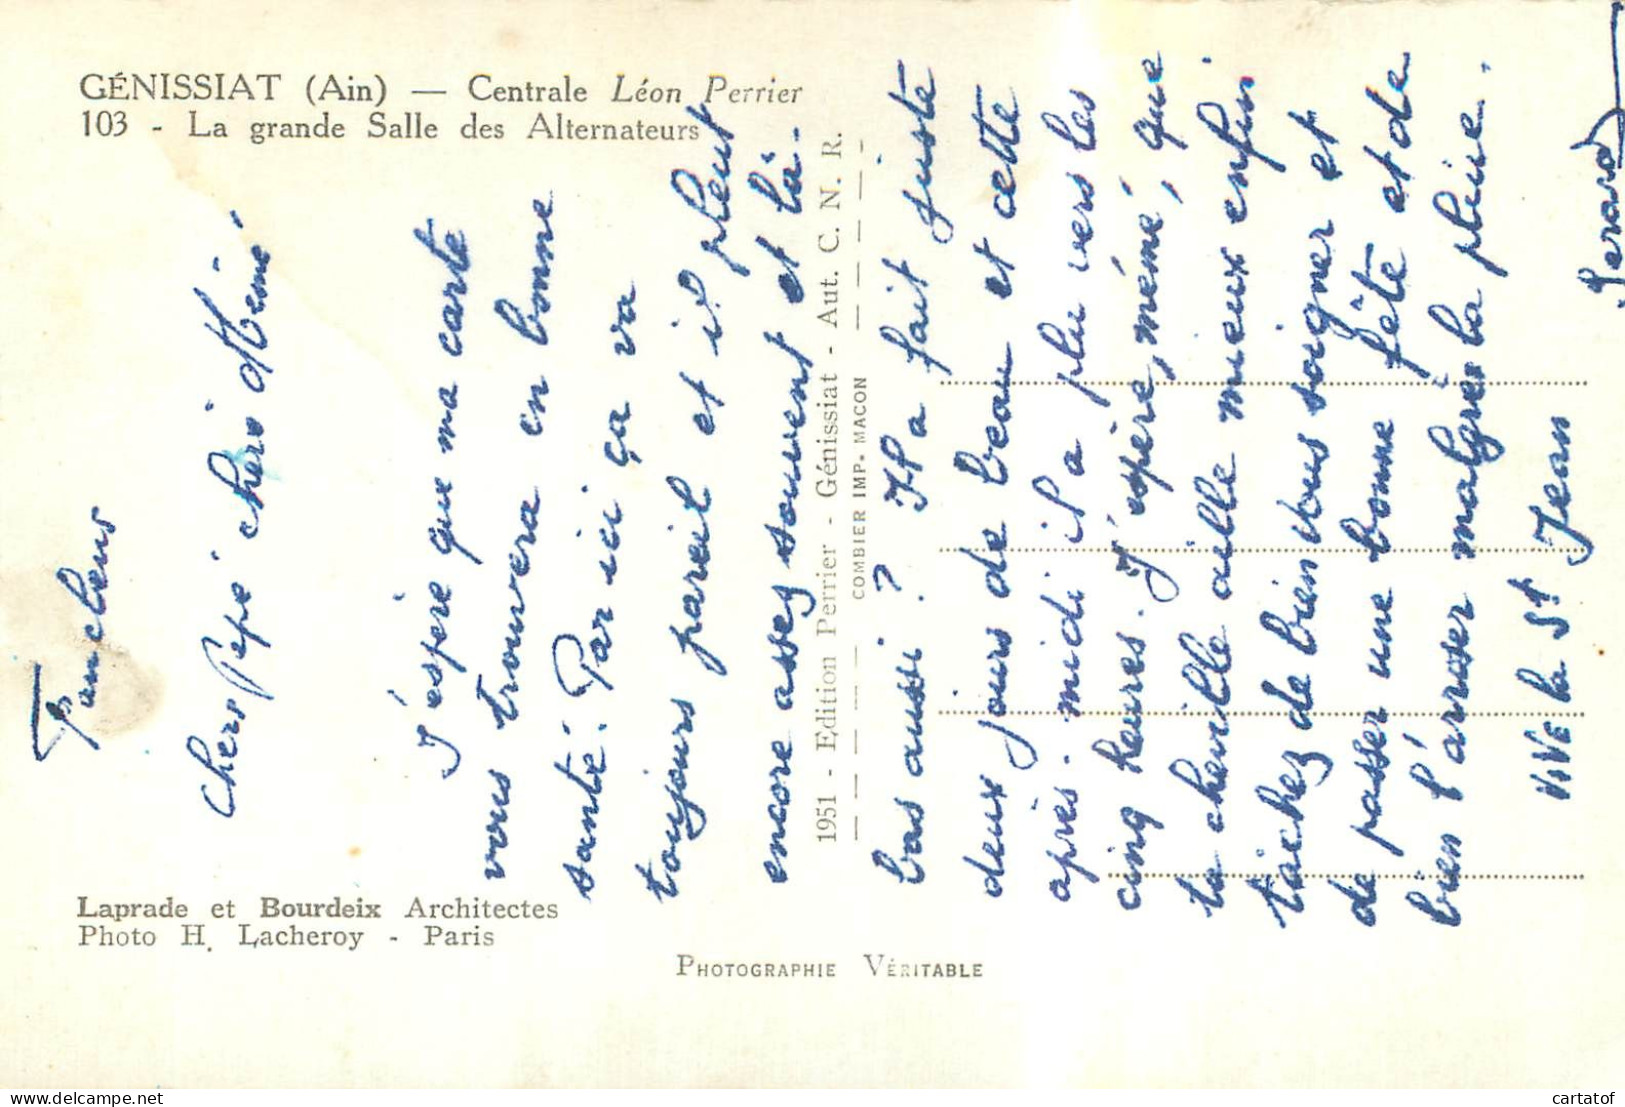 GÉNISSIAT (Ain) — Centrale Léon Perrier
103 - La grande Salle des Alternateurs
Laprade et Bourdeix Architectes
Photo H. Lacheroy - Paris
PHOTOGRAPHIE VÉRITABLE
1951 - Edition Perrier - Génissiat - Aut. C. N. R.
COMBIER IMP. MACON
Chers Pépé chère Mémé
J'espère que ma carte
vous trouvera en bonne
santé. Par ici ça va
toujours pareil et il pleut
encore assez souvent et là-
bas aussi ? Il a fait juste
deux jours de beau et cette
après-midi il a plu vers les
cinq heures. J'espère, mémé, que
ta cheville aille mieux enfin
tâchez de bien vous soigner et
de passer une bonne fête et de
bien l'arroser malgrés la pluie.
ViVE la St Jean
Gérard
cartatof